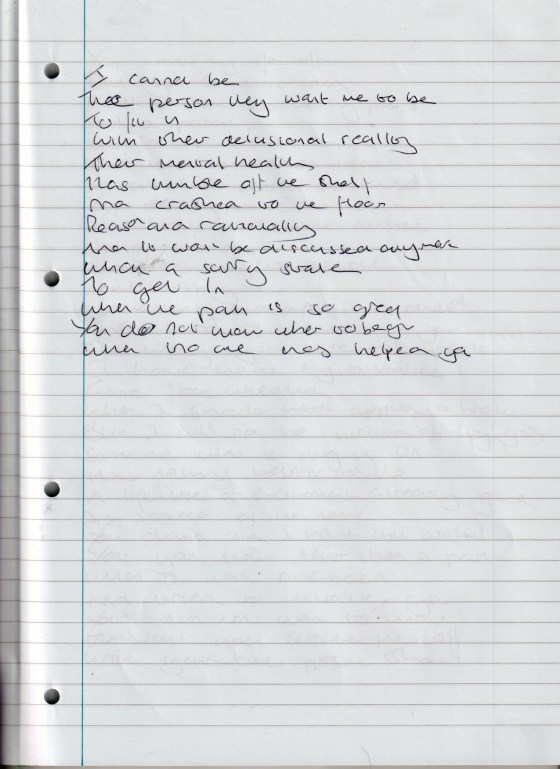 I cannot be
The person they want me to be
To fit in
With their delusional reality
Their mental health
Has off the shelf
And crashed to the floor
Reason and rationality
to be discussed anymore
What a sorry state
To get in
When the pain is so great
You do not know where to begin
When no one has helped you